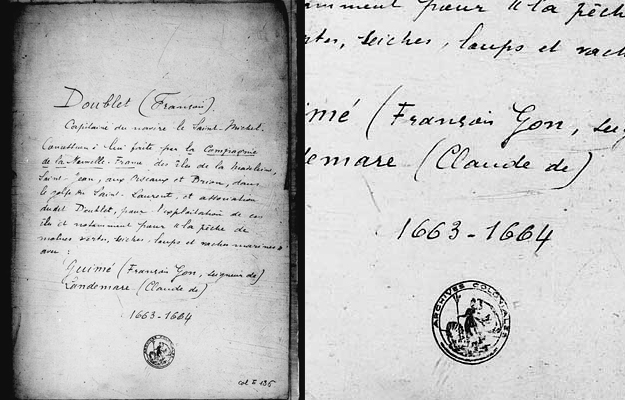 Doublet (François).
Capitaine du navire le Saint-Michel.
Concession à lui faite par la Compagnie
de la Nouvelle-France des îles de la Madeleine,
Saint-Jean, aux Oiseaux et Brion, dans
le golfe du Saint-Laurent, et association
dudit Doublet, pour l'exploitation de ces
îles et notamment pour "la pêche de
molues vertes, seiches, loups et vaches marines"
avec :
Guimé (François Gon, seigneur de)
Landemare (Claude de)
1663-1664
ARCHIVES COLONIALES
col E 135
mment pour "la pêche
rtes, seiches, loups et vach
imé (François Gon, seig
demare (Claude de)
1663-1664
ARCHIVES COLONIALES